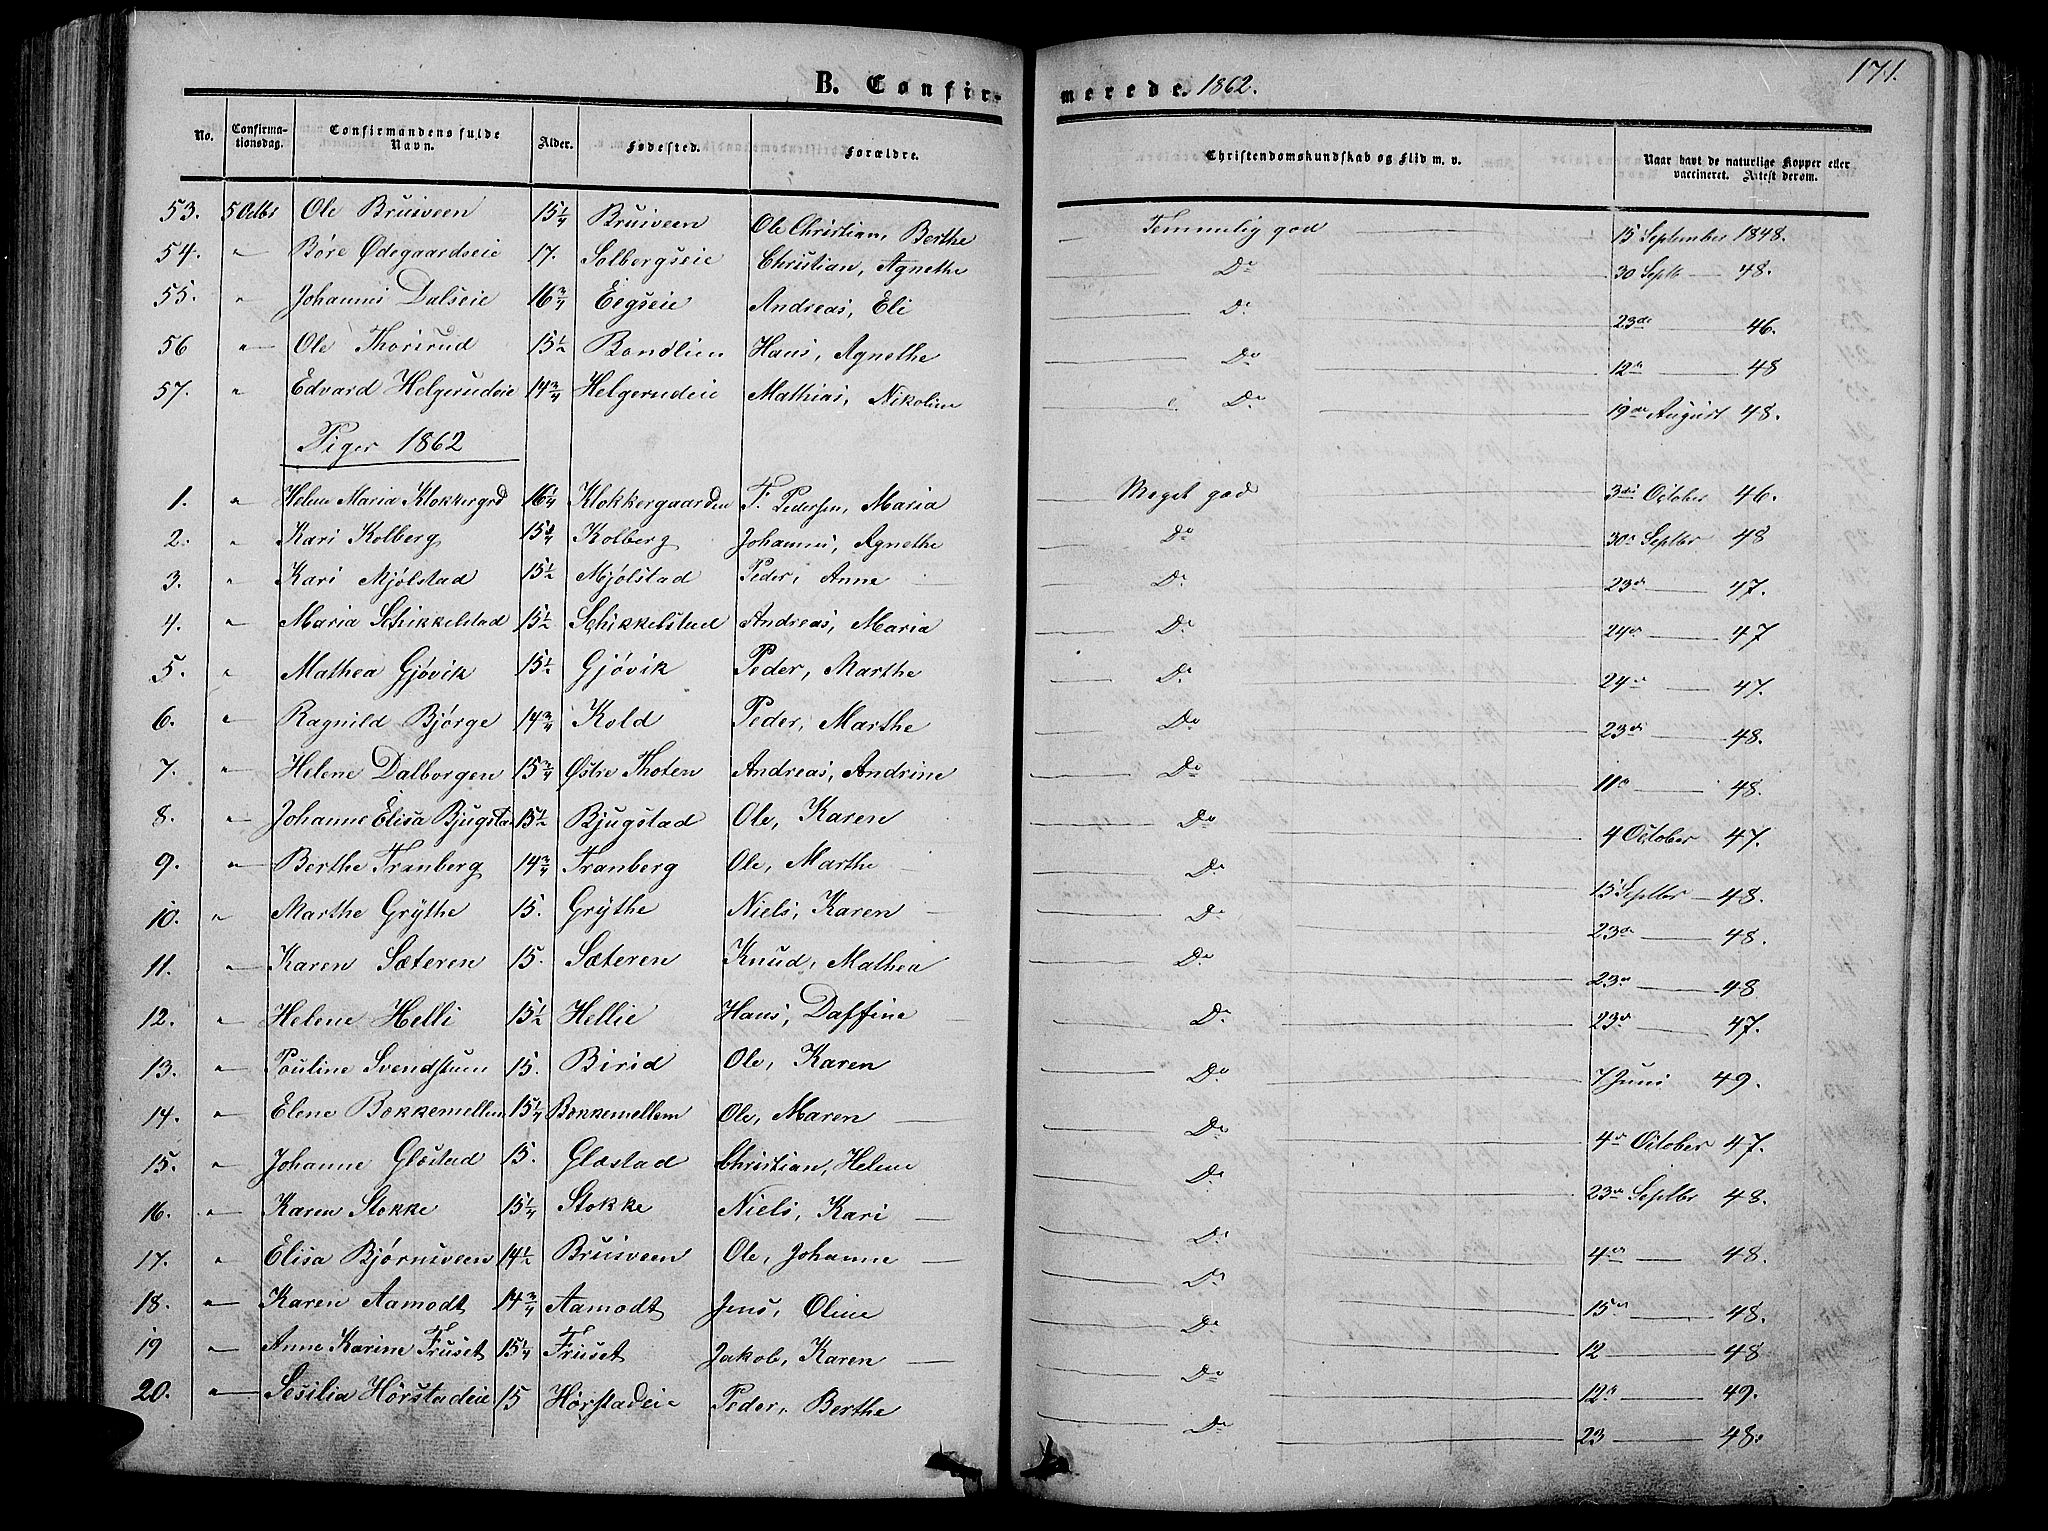 171.
B. Confirmerede. 1862.
No. Confirmationsdag. Confirmandens fulde Navn. Alder. Fødested. Forældre. Christendomskundskab og Flid m. v. Naar havt de naturlige Kopper eller vaccineret. Attest derom.
53. 5 Octbr Ole Brusveen 15 1/4 Brusveen Ole Christian, Berthe — Temmelig god 15 September 1848.
54. " Børe Ødegaardseie 17. Solbergseie Christian, Agnethe — Do — 30 Septb — 48.
55. " Johannes Dalseie 16 3/4 Eegseie Andreas, Eli — Do — 23de — 46.
56 " Ole Thorsrud 15 1/2 Bondlien Hans, Agnethe — Do — 12te — 48
57. " Edvard Helgerudeie 14 3/4 Helgerudeie Mathias, Nikoline — Do — 19de August 48.
Piger 1862
1. " Helene Maria Klokkergrd 16 1/4 Klokkergaarden F. Pedersen, Maria — Meget god 3die October 46.
2. " Kari Kolberg 15 1/4 Kolberg Johannes, Agnethe — Do — 30te Septbr 48
3. " Kari Mjølstad 15 1/2 Mjølstad Peder, Anne — Do — 23de — 47.
4. " Maria Schikkelstad 15 1/2 Schikkelstad Andreas, Maria — Do — 24de — 47
5. " Mathea Gjøvik 15 1/2 Gjøvik Peder, Marthe — Do — 24de — 47.
6. " Ragnild Bjørge 14 3/4 Kold Peder, Marthe — Do — 23de — 48.
7. " Helene Dalborgen 15 3/4 Østre Thoten Andreas, Andrine — Do — 11te — 48.
8. " Johanne Elisa Bjugstad 15 1/2 Bjugstad Ole, Karen — Do — 4 October 47.
9. " Berthe Tranberg 14 3/4 Tranberg Ole, Marthe — Do — 15 Septbr — 48.
10. " Marthe Grythe 15. Grythe Niels, Karen — Do — 23de — 48.
11. " Karen Sæteren 15. Sæteren Knud, Mathea — Do — 23de — 48.
12. " Helene Helli 15 1/2 Hellie Hans, Daffine — Do — 23de — 47.
13. " Pouline Svendstuen 15. Birid Ole, Karen — Do — 7 Juni 49.
14. " Elene Bokkemellem 15 1/4 Bokkemellem Ole, Maren — Do — 4de October 47.
15. " Johanne Glæstad 15. Glæstad Christian, Helene — Do — 23de Septbr 48.
16. " Karen Stokke 15 1/4 Stokke Niels, Kari — Do — 4de — 48.
17. " Elisa Bjørnsveen 14 1/2 Brusveen Ole, Johanne — Do — 15de — 48.
18. " Karen Aamodt 14 3/4 Aamodt Jens, Oline — Do — 12 — 48
19 " Anne Karine Fruset 15 1/4 Fruset Jakob, Karen — Do — 12te — 49.
20. " Sesilia Hørstadeie 15 Hørstadeie Peder, Berthe — Do — 23 — 48.